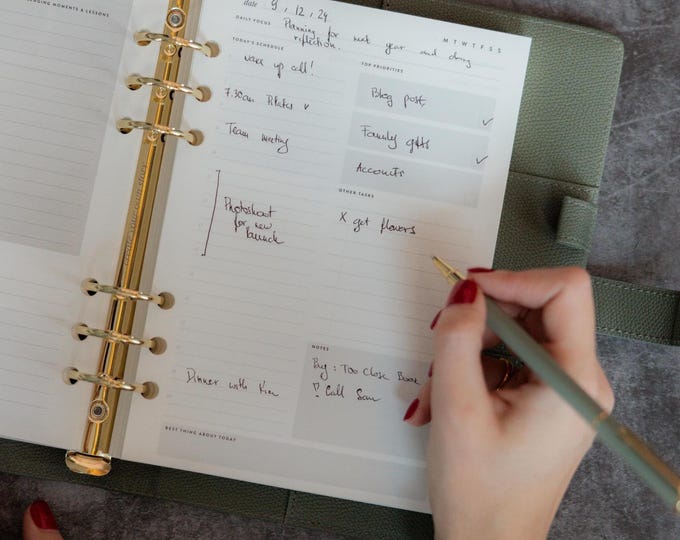 LENGING MOMENTS & LESSONS
date 9, 12, 24
M T W T F S S
DAILY FOCUS Planning for next year and doing
reflection.
TODAY'S SCHEDULE
wake up call!
7.30am Pilates v
Team meeting
Photoshoot
for new
launch
Dinner with Kim
TOP PRIORITIES
Blog post ✓
Family gifts ✓
Accounts
OTHER TASKS
X get flowers
NOTES
By: Too Close Book
! Call Sam
BEST THING ABOUT TODAY